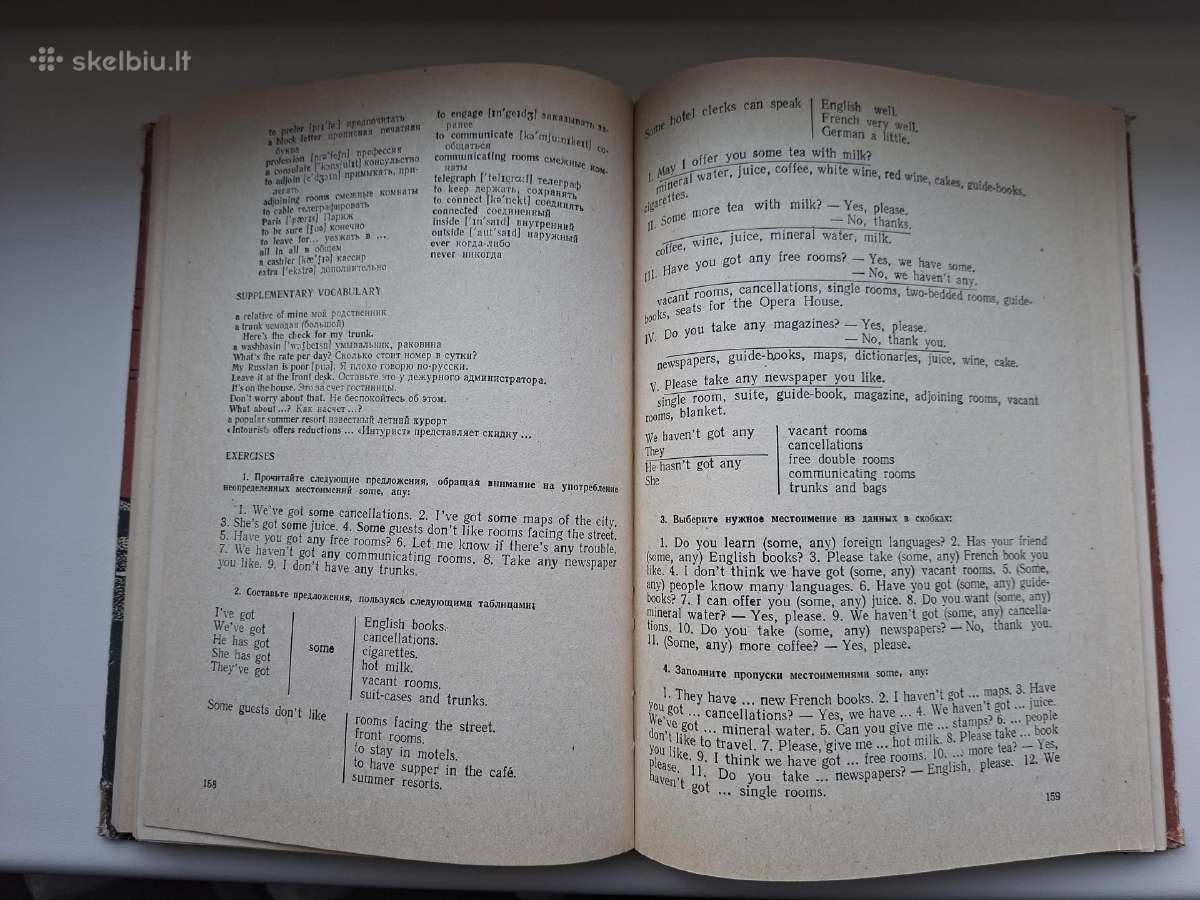 skelbiu.lt
to prefer [prɪˈfɜ:] предпочитать
a block letter прописная печатная
буква
profession [prəˈfeʃn] профессия
a consulate [ˈkɔnsjulɪt] консульство
to adjoin [əˈdʒɔɪn] примыкать, при-
легать
adjoining rooms смежные комнаты
to cable телеграфировать
Paris [ˈpærɪs] Париж
to be sure [ʃuə] конечно
to leave for... уезжать в ...
all in all в общем
a cashier [kæˈʃɪə] кассир
extra [ˈekstrə] дополнительно
to engage [ɪnˈgeɪdʒ] заказывать за-
ранее
to communicate [kəˈmju:nɪkeɪt] со-
общаться
communicating rooms смежные ком-
наты
telegraph [ˈtelɪgrɑ:f] телеграф
to keep держать, сохранять
to connect [kəˈnekt] соединять
connected соединенный
inside [ˈɪnˈsaɪd] внутренний
outside [ˈautˈsaɪd] наружный
ever когда-либо
never никогда
SUPPLEMENTARY VOCABULARY
a relative of mine мой родственник
a trunk чемодан (большой)
Here's the check for my trunk.
a washbasin [ˈwɔʃbeɪsn] умывальник, раковина
What's the rate per day? Сколько стоит номер в сутки?
My Russian is poor [puə]. Я плохо говорю по-русски.
Leave it at the front desk. Оставьте это у дежурного администратора.
It's on the house. Это за счет гостиницы.
Don't worry about that. Не беспокойтесь об этом.
What about ...? Как насчет ...?
a popular summer resort известный летний курорт
«Intourist» offers reductions ... «Интурист» представляет скидку ...
EXERCISES
1. Прочитайте следующие предложения, обращая внимание на употребление
неопределенных местоимений some, any:
1. We've got some cancellations. 2. I've got some maps of the city.
3. She's got some juice. 4. Some guests don't like rooms facing the street.
5. Have you got any free rooms? 6. Let me know if there's any trouble.
7. We haven't got any communicating rooms. 8. Take any newspaper
you like. 9. I don't have any trunks.
2. Составьте предложения, пользуясь следующими таблицами:
I've got
We've got
He has got
She has got
They've got
some
English books.
cancellations.
cigarettes.
hot milk.
vacant rooms.
suit-cases and trunks.
Some guests don't like
rooms facing the street.
front rooms.
to stay in motels.
to have supper in the café.
summer resorts.
158
Some hotel clerks can speak
English well.
French very well.
German a little.
I. May I offer you some tea with milk?
mineral water, juice, coffee, white wine, red wine, cakes, guide-books,
cigarettes.
II. Some more tea with milk? — Yes, please.
— No, thanks.
coffee, wine, juice, mineral water, milk.
III. Have you got any free rooms? — Yes, we have some.
— No, we haven't any.
vacant rooms, cancellations, single rooms, two-bedded rooms, guide-
books, seats for the Opera House.
IV. Do you take any magazines? — Yes, please.
— No, thank you.
newspapers, guide-books, maps, dictionaries, juice, wine, cake.
V. Please take any newspaper you like.
single room, suite, guide-book, magazine, adjoining rooms, vacant
rooms, blanket.
We haven't got any
They
He hasn't got any
She
vacant rooms
cancellations
free double rooms
communicating rooms
trunks and bags
3. Выберите нужное местоимение из данных в скобках:
1. Do you learn (some, any) foreign languages? 2. Has your friend
(some, any) English books? 3. Please take (some, any) French book you
like. 4. I don't think we have got (some, any) vacant rooms. 5. (Some,
any) people know many languages. 6. Have you got (some, any) guide-
books? 7. I can offer you (some, any) juice. 8. Do you want (some, any)
mineral water? — Yes, please. 9. We haven't got (some, any) cancella-
tions. 10. Do you take (some, any) newspapers? — No, thank you.
11. (Some, any) more coffee? — Yes, please.
4. Заполните пропуски местоимениями some, any:
1. They have ... new French books. 2. I haven't got ... maps. 3. Have
you got ... cancellations? — Yes, we have ... 4. We haven't got ... juice.
We've got ... mineral water. 5. Can you give me ... stamps? 6. ... people
don't like to travel. 7. Please, give me ... hot milk. 8. Please take ... book
you like. 9. I think we have got ... free rooms. 10. ... more tea? — Yes,
please. 11. Do you take ... newspapers? — English, please. 12. We
haven't got ... single rooms.
159